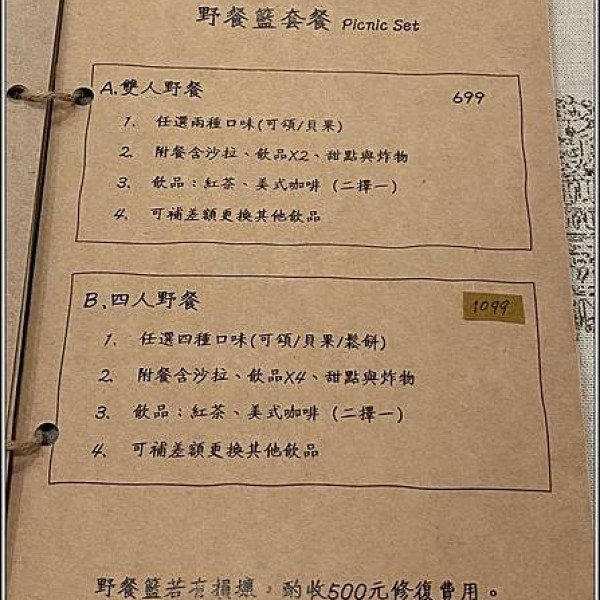 野餐籃套餐 Picnic Set
A.雙人野餐 699
1. 任選兩種口味(可頌/貝果)
2. 附餐含沙拉、飲品X2、甜點與炸物
3. 飲品：紅茶、美式咖啡 (二擇一)
4. 可補差額更換其他飲品
B.四人野餐 1099
1. 任選四種口味(可頌/貝果/鬆餅)
2. 附餐含沙拉、飲品X4、甜點與炸物
3. 飲品：紅茶、美式咖啡 (二擇一)
4. 可補差額更換其他飲品
野餐籃若有損壞，酌收500元修復費用。